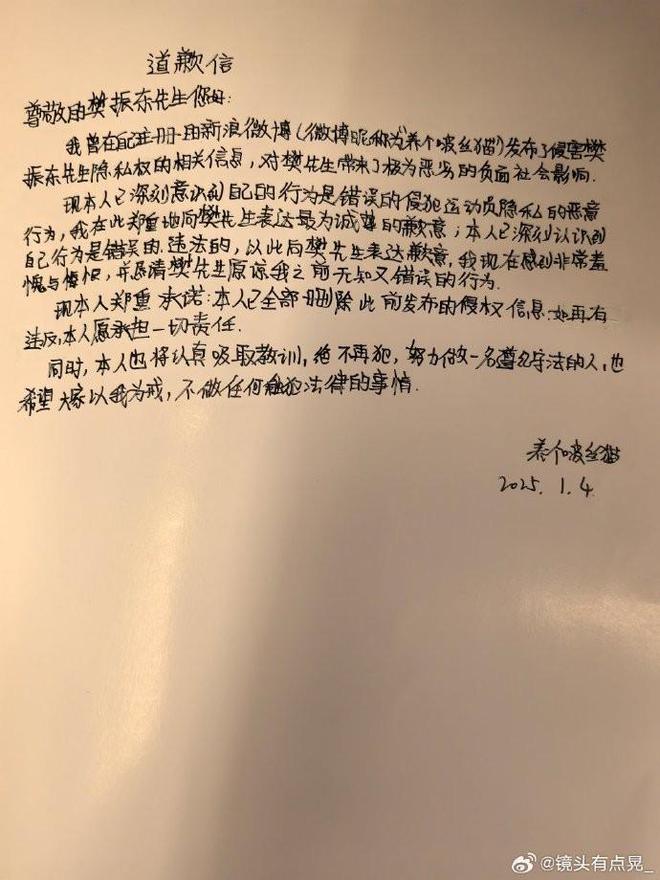 道歉信
尊敬的樊振东先生您好:
我曾在注册的新浪微博(微博昵称为"养个啵丝猫")发布了侵害樊
振东先生隐私权的相关信息，对樊先生带来了极为恶劣的负面社会影响.
现本人已深刻意识到自己的行为是错误的侵犯运动员隐私的恶意
行为，我在此郑重地向樊先生表达最为诚挚的歉意；本人已深刻认识到
自己行为是错误的.违法的，以此向樊先生表达歉意，我现在感到非常羞
愧与悔恨，并恳请樊先生原谅我之前无知又错误的行为.
现本人郑重承诺:本人已全部删除此前发布的侵权信息.如再有
违反,本人愿承担一切责任.
同时,本人也将认真吸取教训,绝不再犯，努力做一名遵纪守法的人,也
希望大家以我为戒，不做任何触犯法律的事情.
养个啵丝猫
2025.1.4
@镜头有点晃_